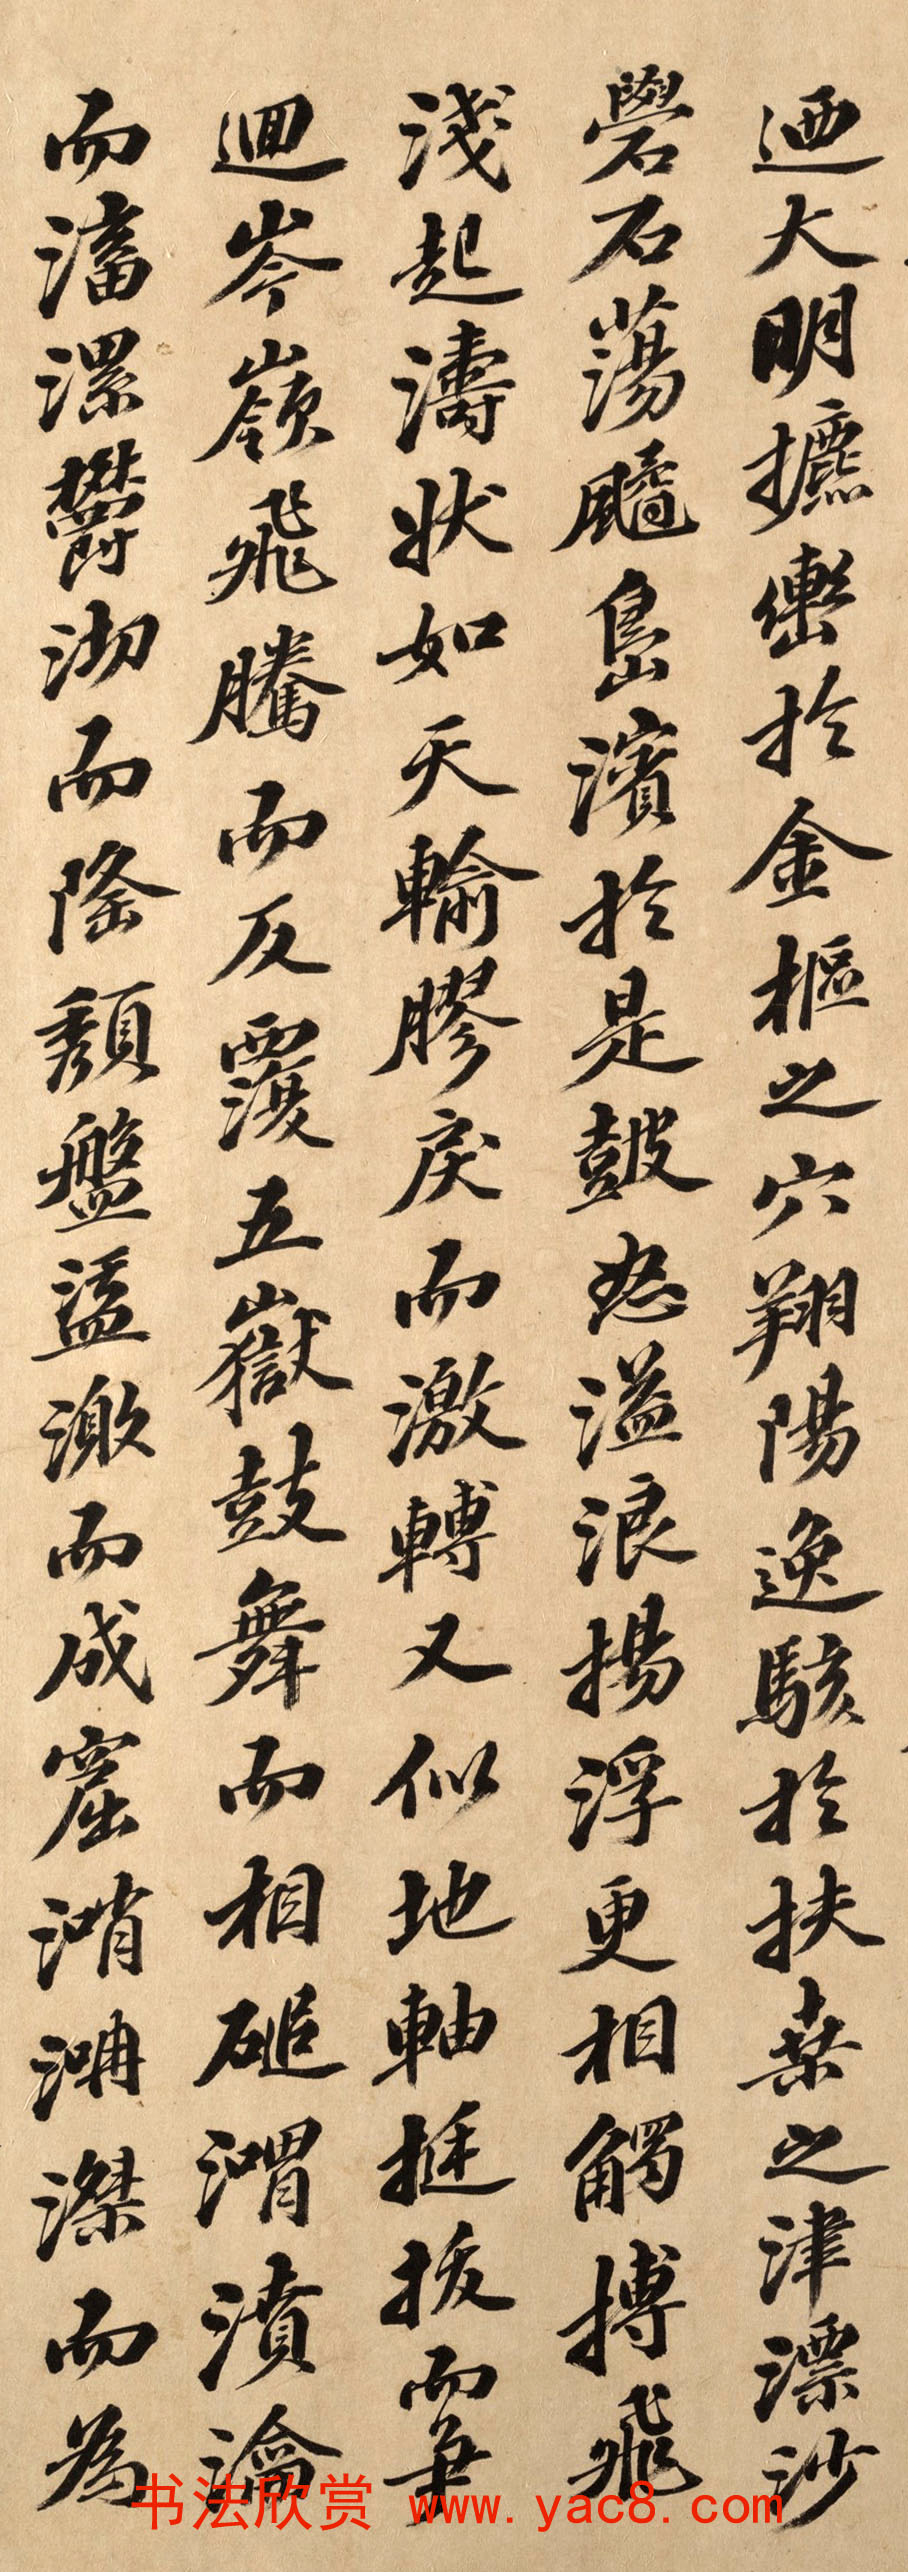 迺大明攄轡於金樞之穴翔陽逸駭於扶桑之津漂沙
礐石蕩䬍島濱於是鼓怒溢浪揚浮更相觸搏飛
淺起濤狀如天輪膠戾而激轉又似地軸挺拔而爭
迴岑嶺飛騰而反覆五嶽鼓舞而相磓渭濆淪
而滀漯鬱沏而隆頹盤盓激而成窟㴥㴊滐而為
书法欣赏 www.yac8.com